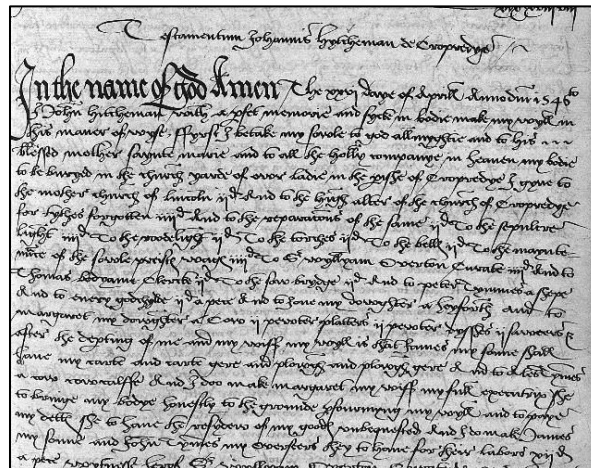 Testamentum Johannis Hytcheman de Cropredye
In the name of god Amen The xxvj daye of Aprill Anno dni 1546to
I John Hitcheman with a pfet memorie and syck in bodie make my wyll in
this maner of wyse, ffyrst I betake my sowle to god allmyghtie and to his
blessed mother saynte marie and to all the holly companye in heaven my bodie
to be buryed in the church yarde of owr ladie in the pishe of Cropredye I gyve to
the mother church of lincoln ijd And to the hygh alter of the church of Cropredye
for tythes forgotten iiijd And to the reparacons of the same ijd To the sepulcre
light iiijd To the roodelight ijd To the torches ijd To the bells ijd To the maynte-
nnce of the sowle iiijd To Sr wyllyam Overton Curate iiijd And to
Thomas Clerke ijd To the brydge ijd And to peter a shepe
And to every godchylde ijd a pece And to Jone my dowghter a heyforth and to
margaret my dowghter a Cow ij pewter platters ij pewter dysshes ij sawcers
after the depting of me and my wiff my wyll is that James my sonne shall
have my carte and carte gere and plowgh and plowgh gere And to
a cow calffe And I doo make margaret my wiff my full executrix she
to bringe my bodye honestly to the grounde pfourmyng my wyll and to paye
my detts she to have the resydew of my goods unbequested And I do make James
my sonne and John my overseers they to have for their labors xijd
a pece wytness Sr wyllyam Overton Curate